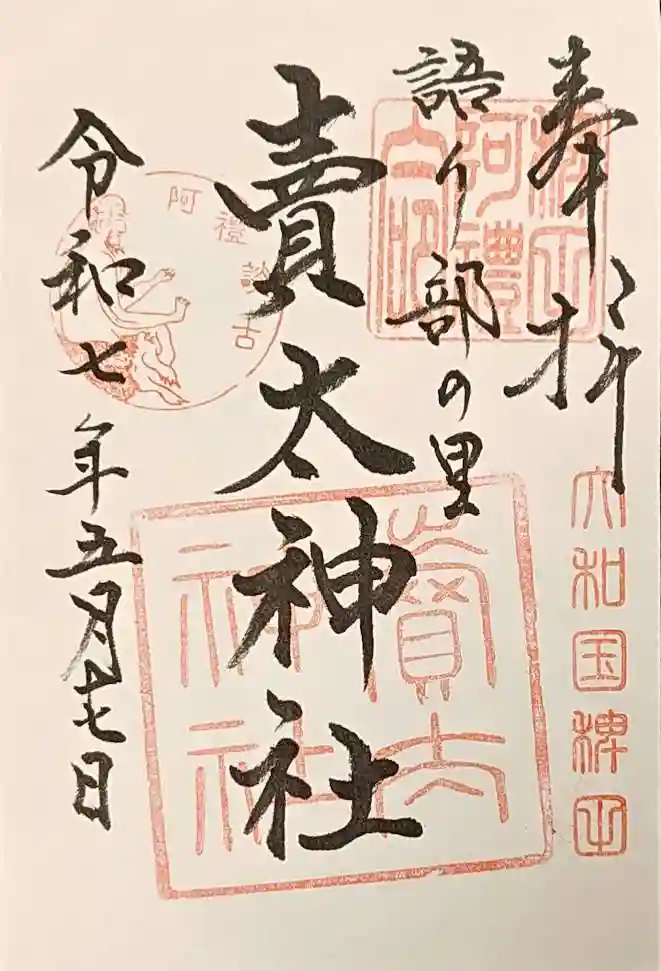 奉拝
大和国稗田
稗田
阿禮
語り部の里
賣太神社
賣太
神社
阿禮談古
令和七年五月十七日